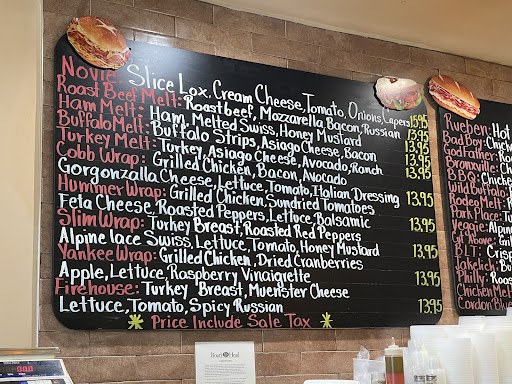 Novie: Slice Lox, Cream Cheese, Tomato, Onions, Capers 15.95
Roast Beef Melt: Roast beef, Mozzarella, Bacon, Russian 13.95
Ham Melt: Ham, Melted Swiss, Honey Mustard 13.95
Buffalo Melt: Buffalo Strips, Asiago Cheese, Bacon 13.95
Turkey Melt: Turkey, Asiago Cheese, Avocado, Ranch 13.95
Cobb Wrap: Grilled Chicken, Bacon, Avocado
Gorgonzalla Cheese, Lettuce, Tomato, Italian Dressing 13.95
Hummer Wrap: Grilled Chicken, Sundried Tomatoes
Feta Cheese, Roasted Peppers, Lettuce, Balsamic 13.95
Slim Wrap: Turkey Breast, Roasted Red Peppers
Alpine lace Swiss, Lettuce, Tomato, Honey Mustard 13.95
Yankee Wrap: Grilled Chicken, Dried Cranberries
Apple, Lettuce, Raspberry Vinaigrette 13.95
Firehouse: Turkey Breast, Muenster Cheese
Lettuce, Tomato, Spicy Russian 13.95
* Price Include Sale Tax *
Rueben: Hot
Bad Boy: Chick
Godfather: Roa
Bronxville: Chick
B B Q: Chicke
Wild Buffalo:
Rodeo Melt:
Park Place: Tur
Veggie: Alpin
Gr. Above: Gri
B.L.T: Crisp
Jakelich: Bu
Philly: Roas
Chicken Melt
Cordon Blue
Boar's Head